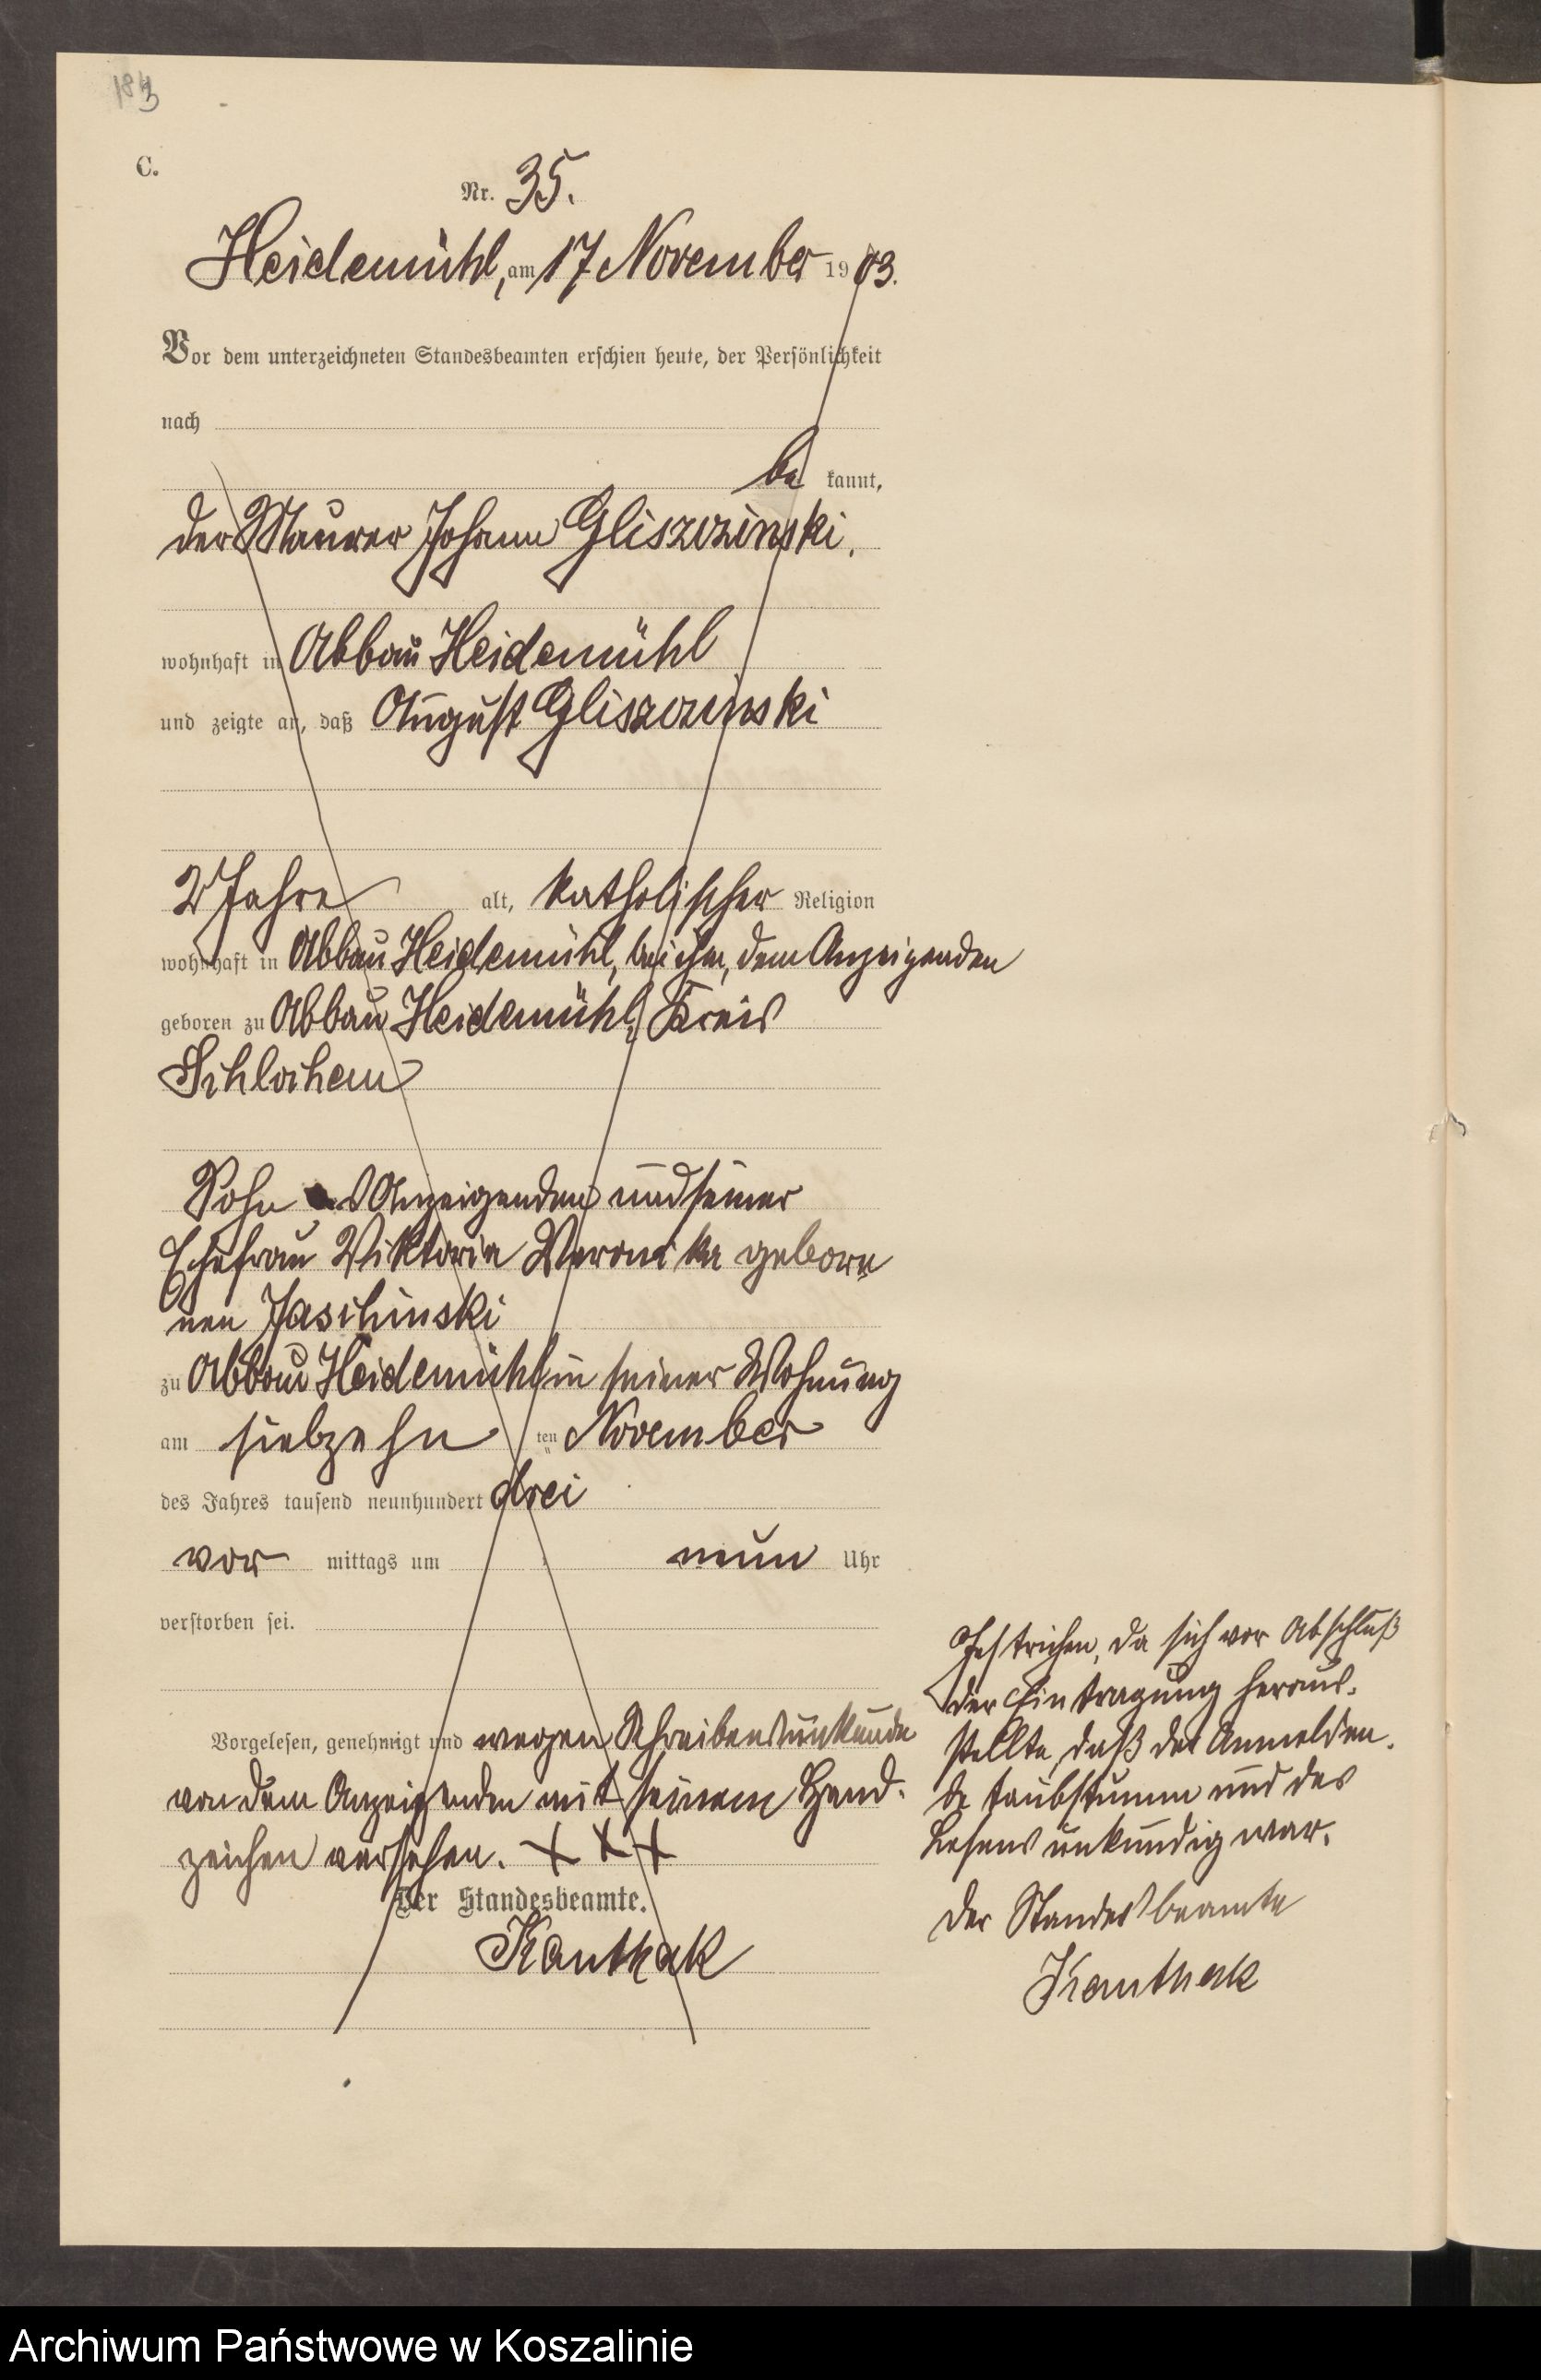 183
C.
Nr. 35.
Heidemühl, am 17 November 1903.
Vor dem unterzeichneten Standesbeamten erschien heute, der Persönlichkeit
nach
be kannt,
der Maurer Johann Gliszczinski,
wohnhaft in Abbau Heidemühl
und zeigte an, daß August Gliszczinski
2 Jahre alt, katholischer Religion
wohnhaft in Abbau Heidemühl, bei ihm, dem Anzeigenden
geboren zu Abbau Heidemühl, Kreis
Schlochau
Sohn des Anzeigenden und seiner
Ehefrau Viktoria Veronika gebore
nen Jaschinski
zu Abbau Heidemühl in seiner Wohnung
am siebzehn ten November
des Jahres tausend neunhundert drei
vor mittags um neun Uhr
verstorben sei.
Vorgelesen, genehmigt und wegen Schreibensunkunde
von dem Anzeigenden mit seinem Hand-
zeichen versehen. XXX
Der Standesbeamte.
Kanthak
Gestrichen, da sich vor Abschluß
der Eintragung heraus-
stellte, daß der Anmelden-
de taubstumm und des
Lesens unkundig war.
Der Standesbeamte
Kanthak
Archiwum Państwowe w Koszalinie